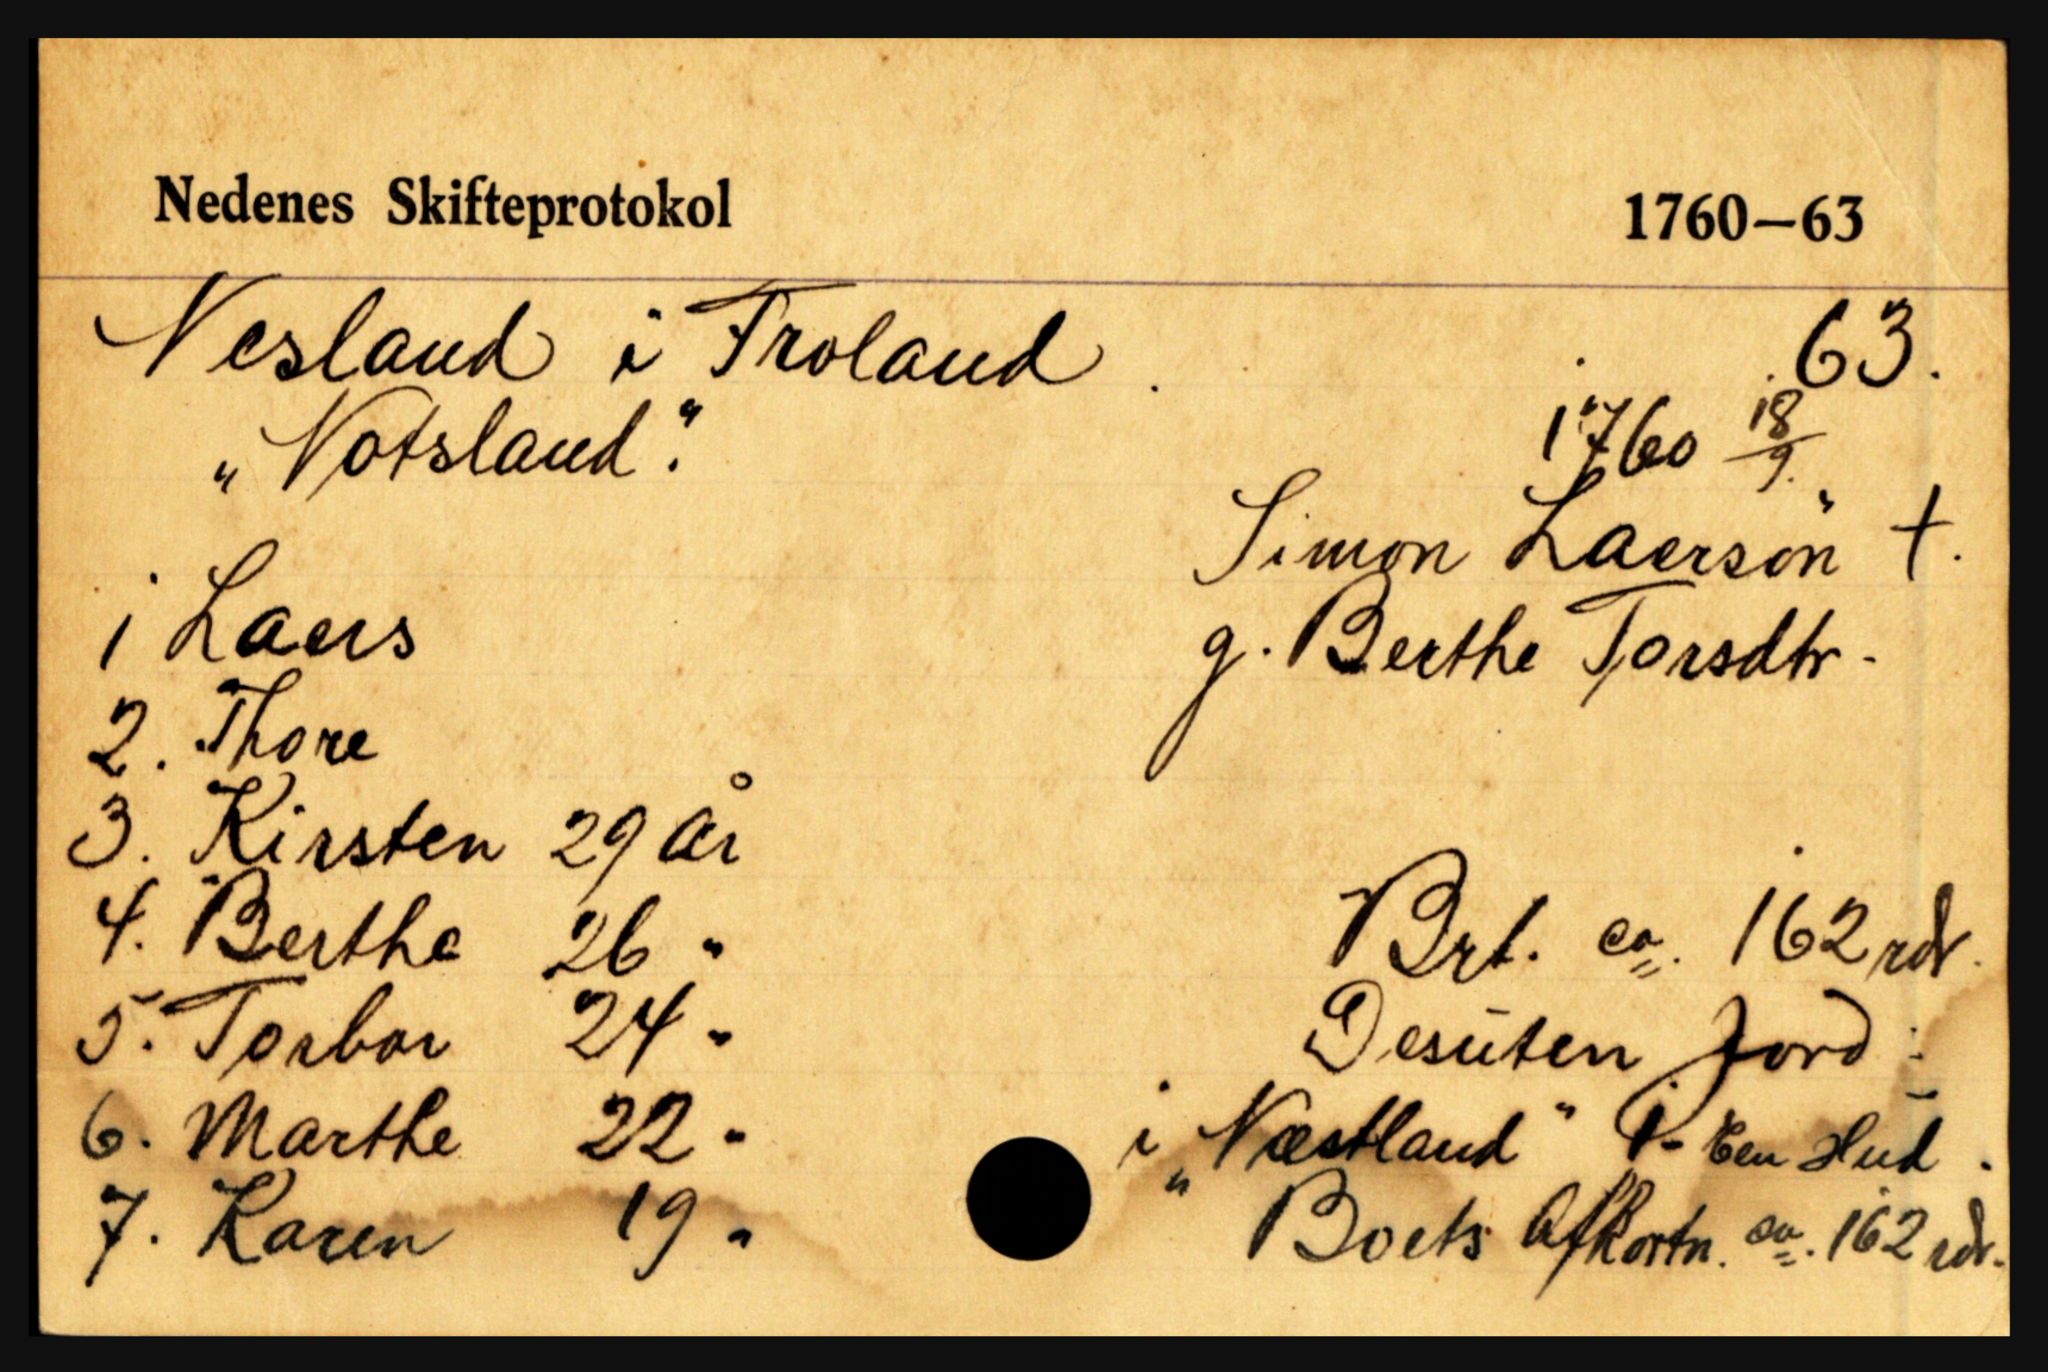 Nedenes Skifteprotokol 1760—63
Nesland i Froland 63.
„Notsland". 1760 18/9.
Simon Laersön †.
g. Berthe Torsdtr.
1 Laers
2. Thore
3. Kirsten 29 år
4. Berthe 26 "
5. Torbor 24 "
6. Marthe 22 "
7. Karen 19 "
Brt. ca. 162 rdr.
Desuten Jord:
i „Næstland" 1 - Een Hud.
Boets Afkortn. ca. 162 rdr.